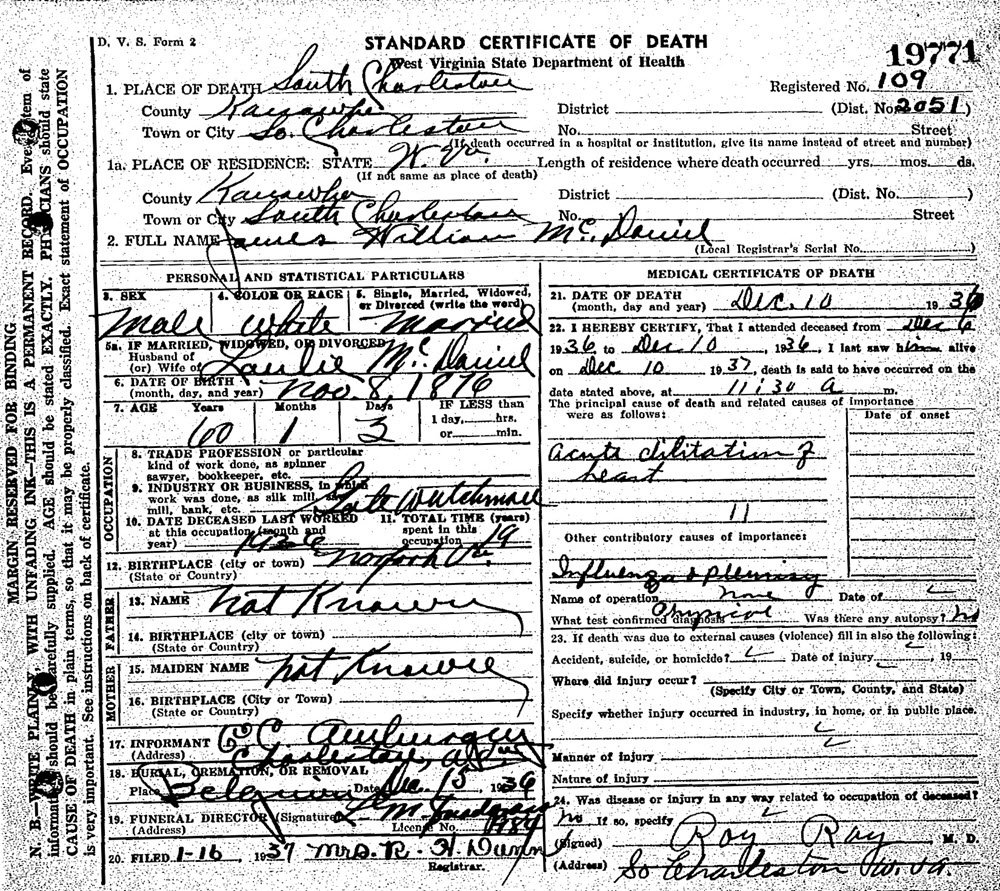 D. V. S. Form 2
STANDARD CERTIFICATE OF DEATH
West Virginia State Department of Health
19771
1. PLACE OF DEATH South Charleston Registered No. 109
County Kanawha District (Dist. No. 2051)
Town or City So. Charleston No. Street
(If death occurred in a hospital or institution, give its name instead of street and number)
1a. PLACE OF RESIDENCE: STATE W. Va. Length of residence where death occurred yrs. mos. ds.
(If not same as place of death)
County Kanawha District (Dist. No.)
Town or City South Charleston No. Street
2. FULL NAME James William Mc. Daniel
(Local Registrar's Serial No.)
PERSONAL AND STATISTICAL PARTICULARS
3. SEX 4. COLOR OR RACE 5. Single, Married, Widowed, or Divorced (write the word)
Male White Married
5a. IF MARRIED, WIDOWED, OR DIVORCED
Husband of
(or) Wife of Mc Daniel
6. DATE OF BIRTH
(month, day, and year) Nov. 8, 1876
7. AGE Years Months Days IF LESS than
1 day, hrs.
60 1 3 or min.
OCCUPATION
8. TRADE PROFESSION or particular
kind of work done, as spinner
sawyer, bookkeeper, etc.
9. INDUSTRY OR BUSINESS, in which
work was done, as silk mill, saw
mill, bank, etc. Watchman
10. DATE DECEASED LAST WORKED
at this occupation (month and
year) 1936
11. TOTAL TIME (years)
spent in this
occupation 19
12. BIRTHPLACE (city or town) Va
(State or Country)
FATHER
13. NAME not Known
14. BIRTHPLACE (city or town)
(State or Country)
MOTHER
15. MAIDEN NAME not Known
16. BIRTHPLACE (City or Town)
(State or Country)
17. INFORMANT
(Address) Charleston,
18. BURIAL, CREMATION, OR REMOVAL
Place Date Dec. 15 1936
19. FUNERAL DIRECTOR (Signature) L M
(Address) License No.
20. FILED 1-16, 1937 Mrs. R. H. Dunn
Registrar.
MEDICAL CERTIFICATE OF DEATH
21. DATE OF DEATH
(month, day and year) Dec. 10 1936
22. I HEREBY CERTIFY, That I attended deceased from Dec 6
1936 to Dec 10, 1936, I last saw him alive
on Dec 10 1937, death is said to have occurred on the
date stated above, at 11:30 a m.
The principal cause of death and related causes of importance
were as follows:
Date of onset
acute dilitation of
heart
11
Other contributory causes of importance:
Influenza & pleurisy
Name of operation none Date of
What test confirmed diagnosis Physical Was there any autopsy? no
23. If death was due to external causes (violence) fill in also the following:
Accident, suicide, or homicide? Date of injury , 19
Where did injury occur?
(Specify City or Town, County, and State)
Specify whether injury occurred in industry, in home, or in public place.
Manner of injury
Nature of injury
24. Was disease or injury in any way related to occupation of deceased?
no If so, specify
(Signed) Roy Ray M. D.
(Address) So Charleston W. Va.
MARGIN RESERVED FOR BINDING
N. B.—WRITE PLAINLY, WITH UNFADING INK—THIS IS A PERMANENT RECORD. Every item of
information should be carefully supplied. AGE should be stated EXACTLY. PHYSICIANS should state
CAUSE OF DEATH in plain terms, so that it may be properly classified. Exact statement of OCCUPATION
is very important. See instructions on back of certificate.